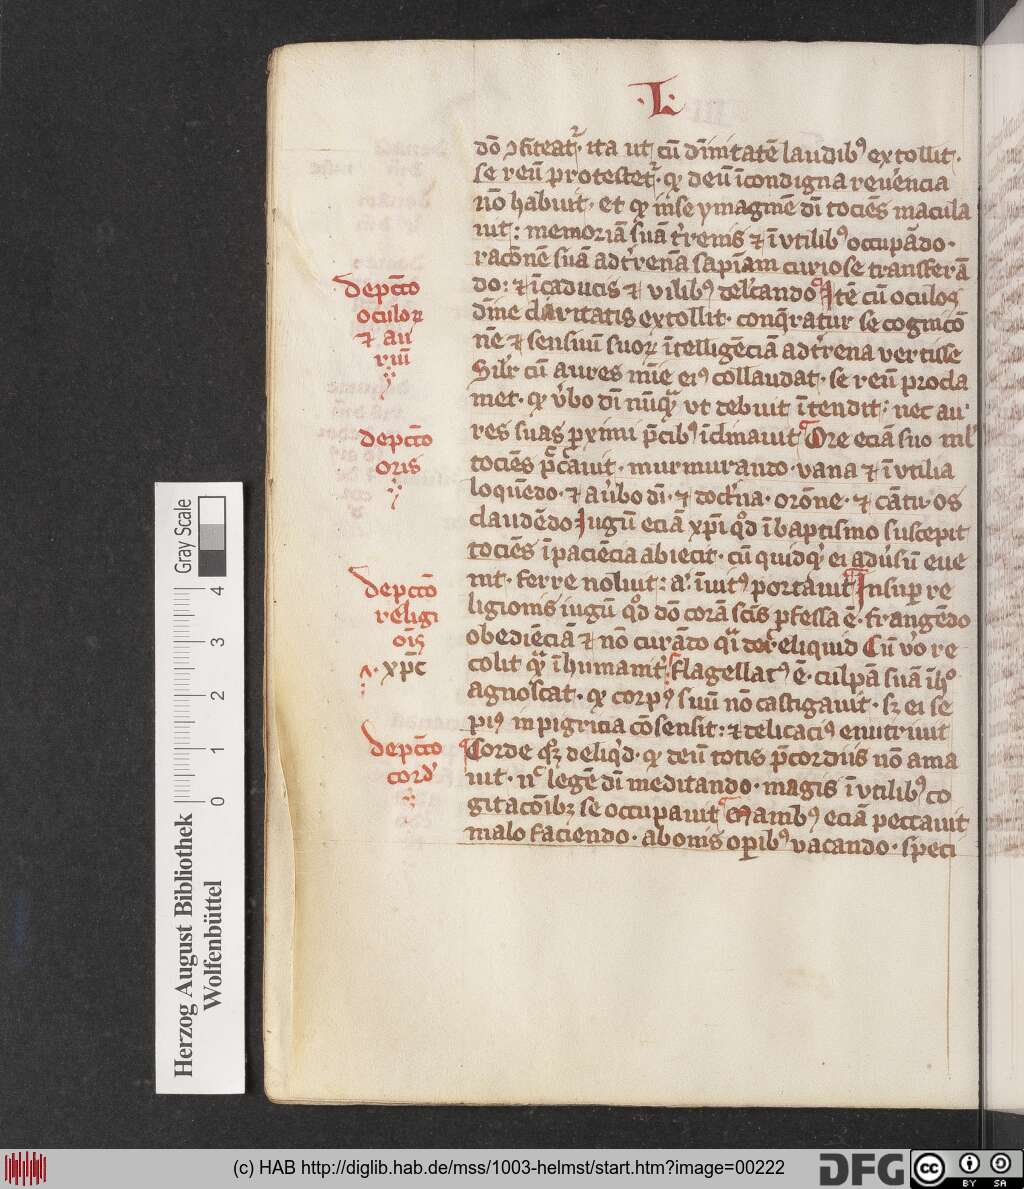 ·L·
dō ꝯfiteat᷑· ita ut cū dīnitatē laudibꝰ extollit·
se reū protestet᷑· qꝛ deū īcondigna reuēncia
nō habuit· et qꝛ inse ymaginē dī tociēs macula
uit: memoriā suā t'renis ⁊ ī vtilibꝰ occupādo·
racōnē suā adt'rena sapīam curiose transferā
do: ⁊ ī caducis ⁊ vilibꝰ delc̄ando Itē cū oculos
dīne claritatis extollit· conq̄ratur se cognicō
nē ⁊ sensuū suoꝝ ītelligēciā adt'rena vertisse
Silr cū aures mīe eiꝰ collaudat· se reū procla
met· qꝛ v'bo dī nūqꝫ ut debuit ītendit: nec au
res suas ꝓximi p̄cibꝰ īclinauit Ore eciā suo
tociēs peccauit· murmurando· vana ⁊ ī vtilia
loquēdo· ⁊ au'bo dī· ⁊ doct'na· orōne· ⁊ cātu· os
claudēdo Iugū eciā xp̄i qd̄ ībaptismo suscepit
tociēs īpaciēcia abiecit· cū quidqd ei adu'sū eue
nit· ferre noluit: aꝉ īuitꝰ portauit Insuꝑ re
ligionis iugū qd̄ dō corā scīs ꝓfessa ē· frangēdo
obediēciā ⁊ nō curādo reliquid Cū vo re
colit qꝫ īhumanit' flagellatꝰ ē· culpā suā īh'
agnoscat· qꝛ corpꝰ suū nō castigauit· sꝫ ei se
piꝰ in pigricia cōsensit: ⁊ delicaciꝰ enutriuit
Corde qꝫ deliqd· qꝛ deū totis p̄cordiis nō ama
uit· nͨ legē dī meditando· magis ī vtilibꝰ co
gitacōibꝫ se occupauit Manibꝰ eciā peccauit
malo faciendo· abonis oꝑibꝰ vacando· speci
depcc̄o
oculoꝝ
⁊ au
riū
depcc̄o
oris
depcc̄o
religi
oīs
xp̄c
depcc̄o
cord'
Herzog August Bibliothek
Wolfenbüttel
Gray Scale
0 1 2 3 4
(c) HAB http://diglib.hab.de/mss/1003-helmst/start.htm?image=00222
DFG
cc BY SA